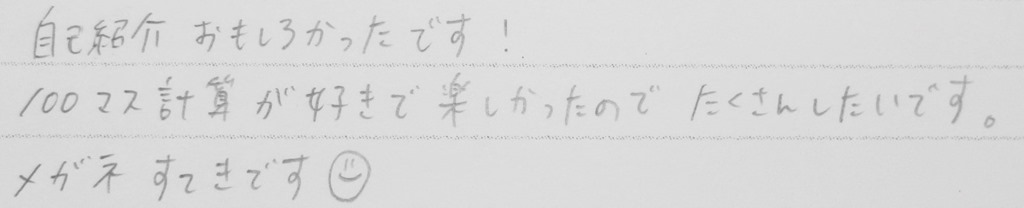 自己紹介 おもしろかったです!
100マス計算が好きで楽しかったので たくさんしたいです。
メガネ すてきです☺